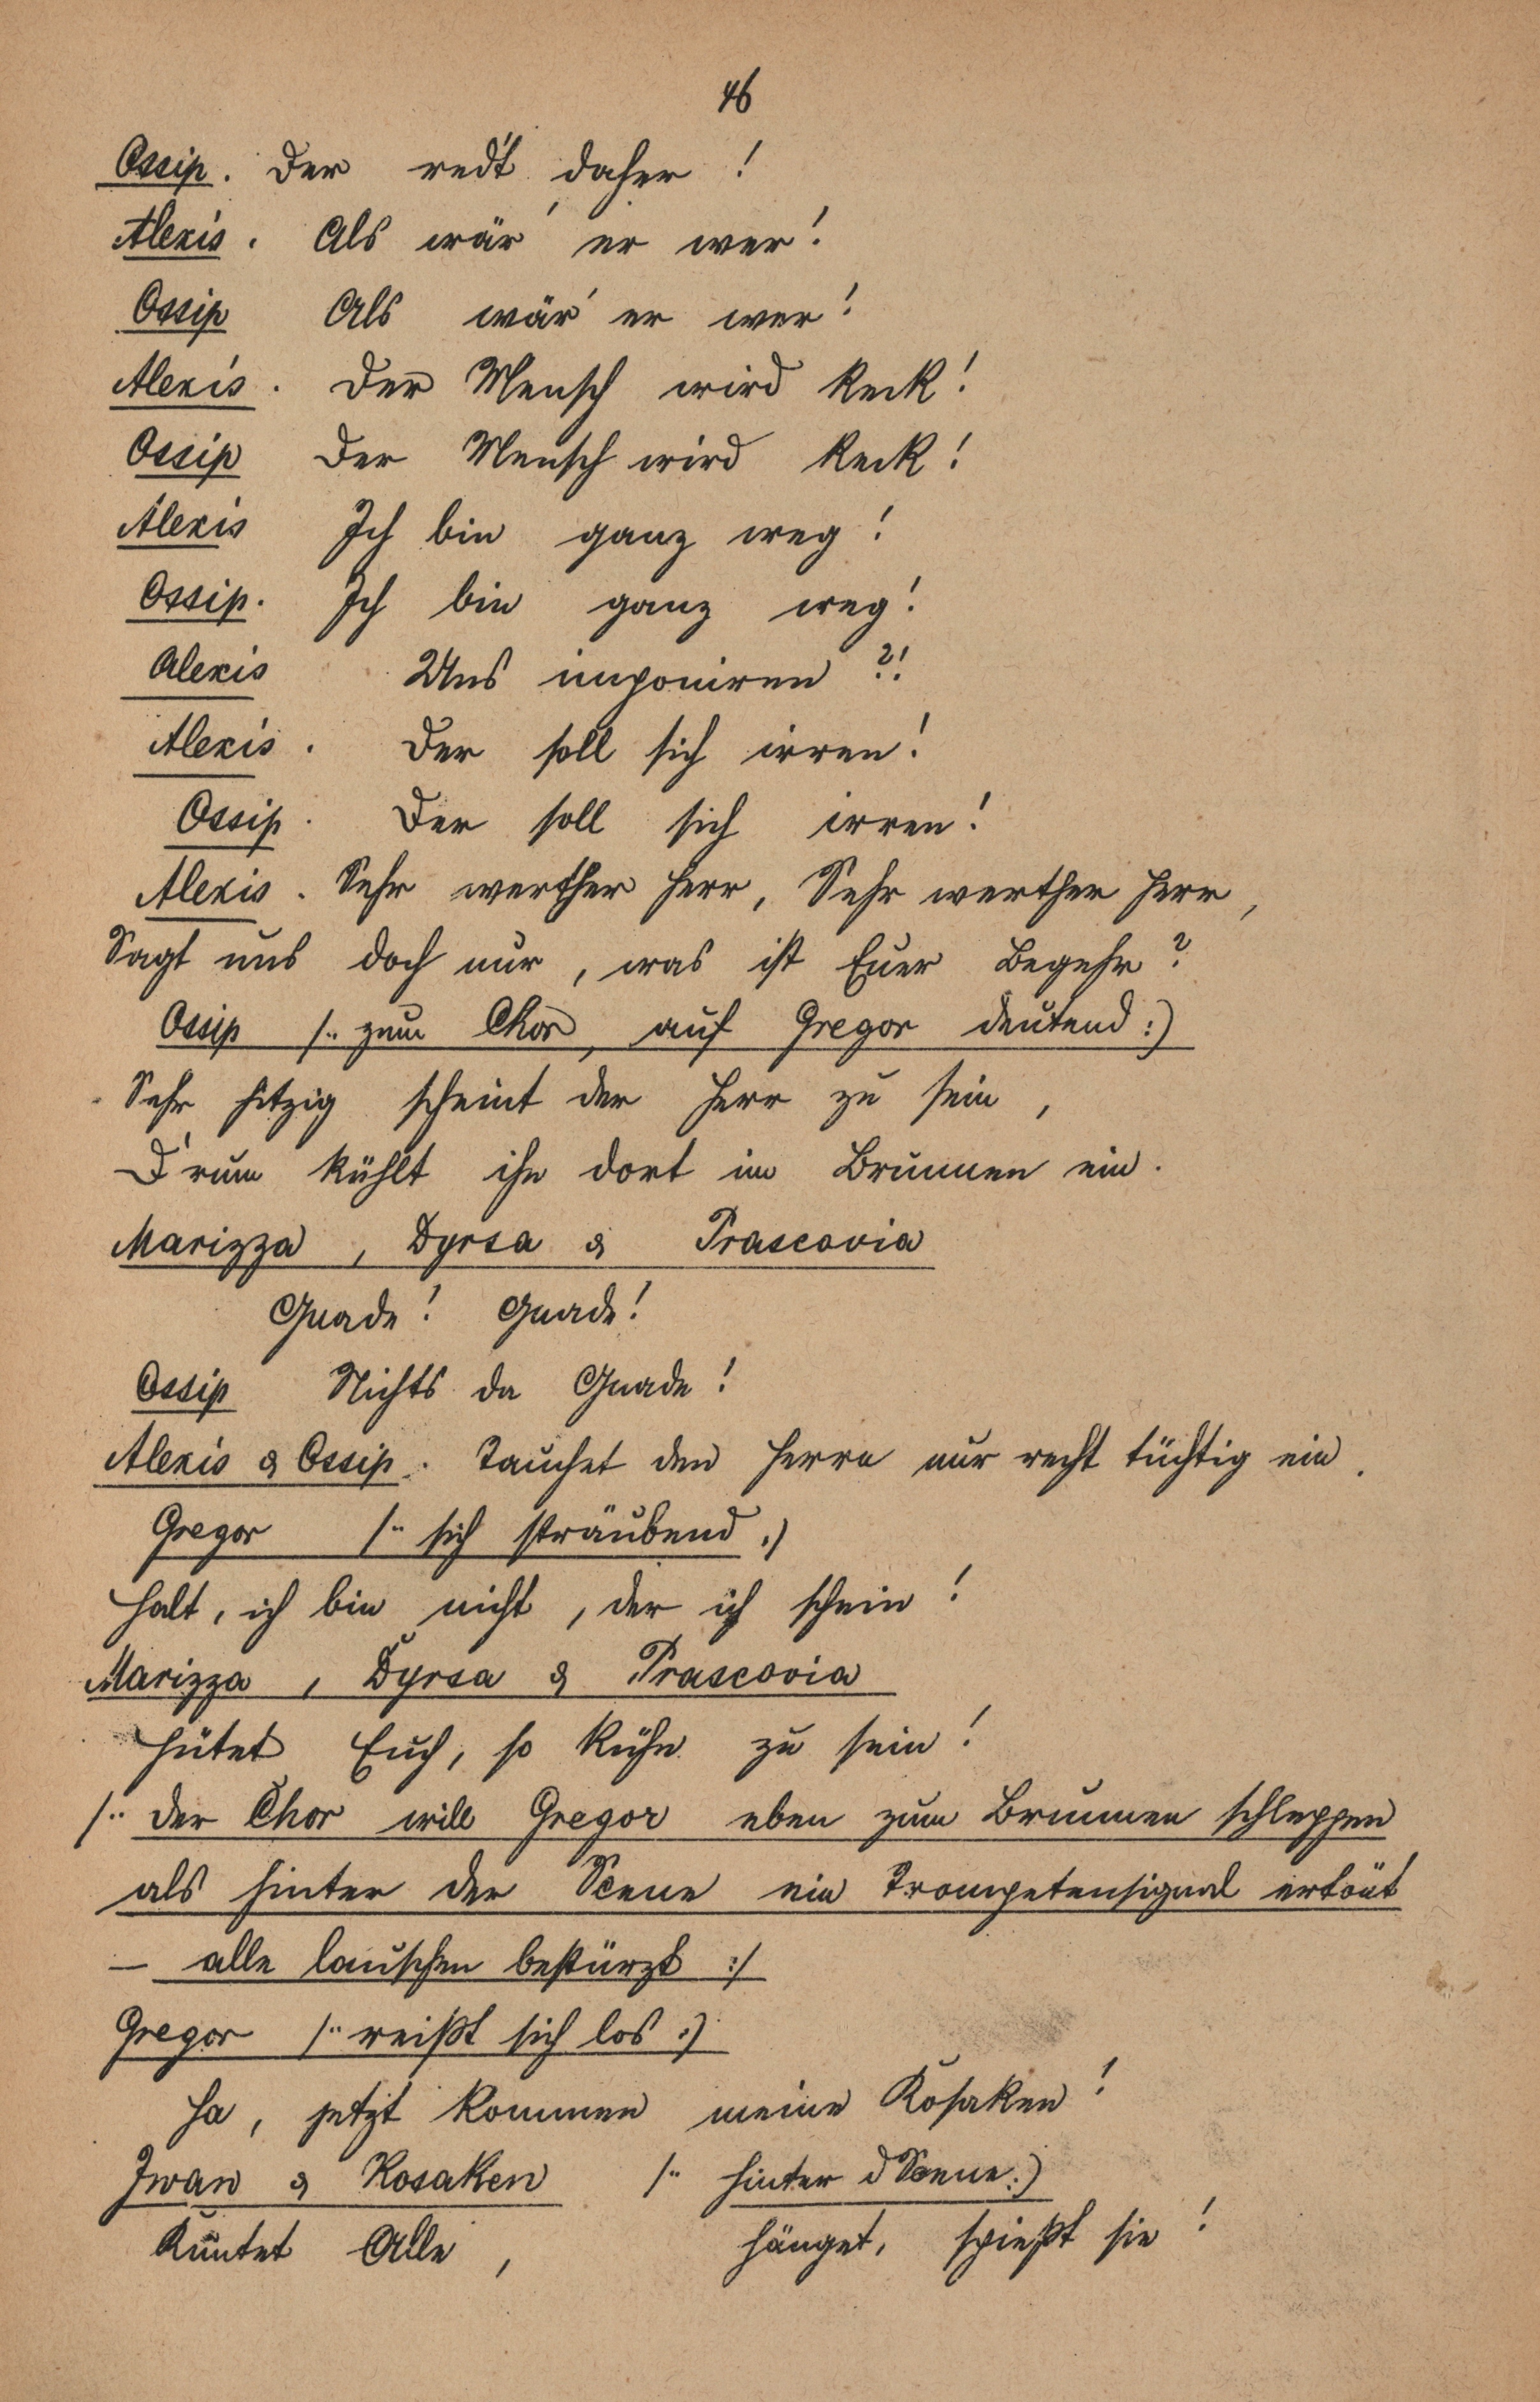 46
Ossip. Der red't daher!
Alexis. Als wär' er wer!
Ossip Als wär' er wer!
Alexis. Der Mensch wird keck!
Ossip Der Mensch wird keck!
Alexis Ich bin ganz weg!
Ossip. Ich bin ganz weg!
Alexis Uns imponiren?!
Alexis. Der soll sich irren!
Ossip. Der soll sich irren!
Alexis. Sehr werther Herr, Sehr werther Herr,
Sagt uns doch nur, was ist Euer Begehr?
Ossip /: zum Chor, auf Gregor deutend :)
Sehr hitzig scheint der Herr zu sein,
D'rum kühlt ihn dort im Brunnen ein.
Marizza, Dyrsa & Prascovia
Gnade! Gnade!
Ossip Nichts da Gnade!
Alexis & Ossip. Tauchet den Herrn nur recht tüchtig ein.
Gregor /: sich sträubend :)
Halt, ich bin nicht, der ich schein!
Marizza, Dyrsa & Prascovia
Hütet Euch, so kühn zu sein!
/: der Chor will Gregor eben zum Brunnen schleppen
als hinter der Scene ein Trompetensignal ertönt
– alle lauschen bestürzt :/
Gregor /: reißt sich los :)
Ha, jetzt kommen meine Kosaken!
Iwan & Kosaken /: hinter d Scene :)
Knutet Alle, hänget, spießt sie!